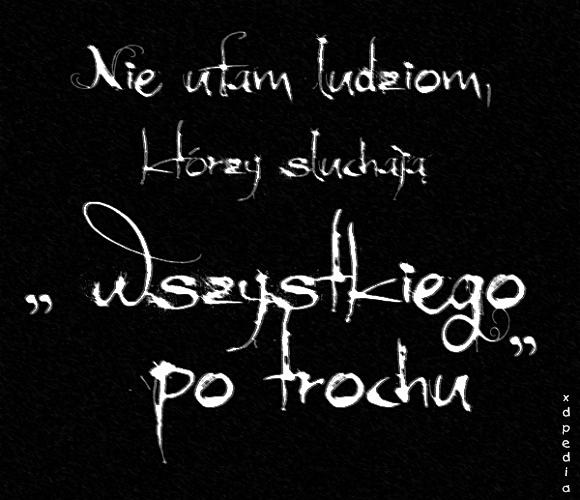 Nie ufam ludziom,
którzy sluchają
„ wszystkiego
po trochu ”
xdpedia